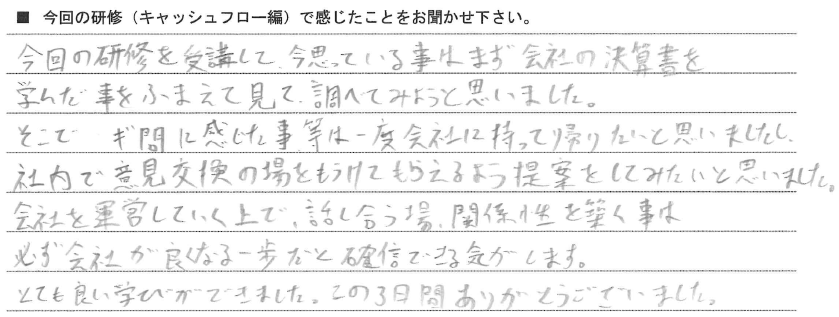 ■ 今回の研修（キャッシュフロー編）で感じたことをお聞かせ下さい。
今回の研修を受講して、今思っている事はまず会社の決算書を
学んだ事をふまえて見て、調べてみようと思いました。
そこで ギ問に感じた事等は一度会社に持って帰りたいと思いましたし、
社内で意見交換の場をもうけてもらえるよう提案をしてみたいと思いました。
会社を運営していく上で、話し合う場、関係性を築く事は
必ず会社が良くなる一歩だと確信できる気がします。
とても良い学びができました。この3日間ありがとうございました。